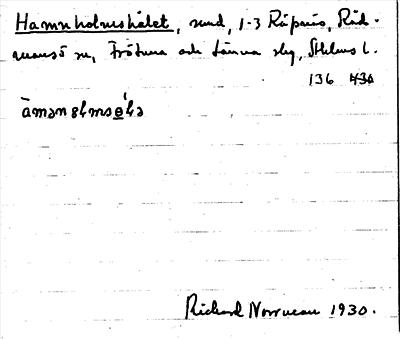 Hamnholmshålet, sund, 1-3 Råpnäs, Råd-
mansö sn, Frötuna och Länna slg, Sthlms l.
136 430
Richard Norrman 1930.